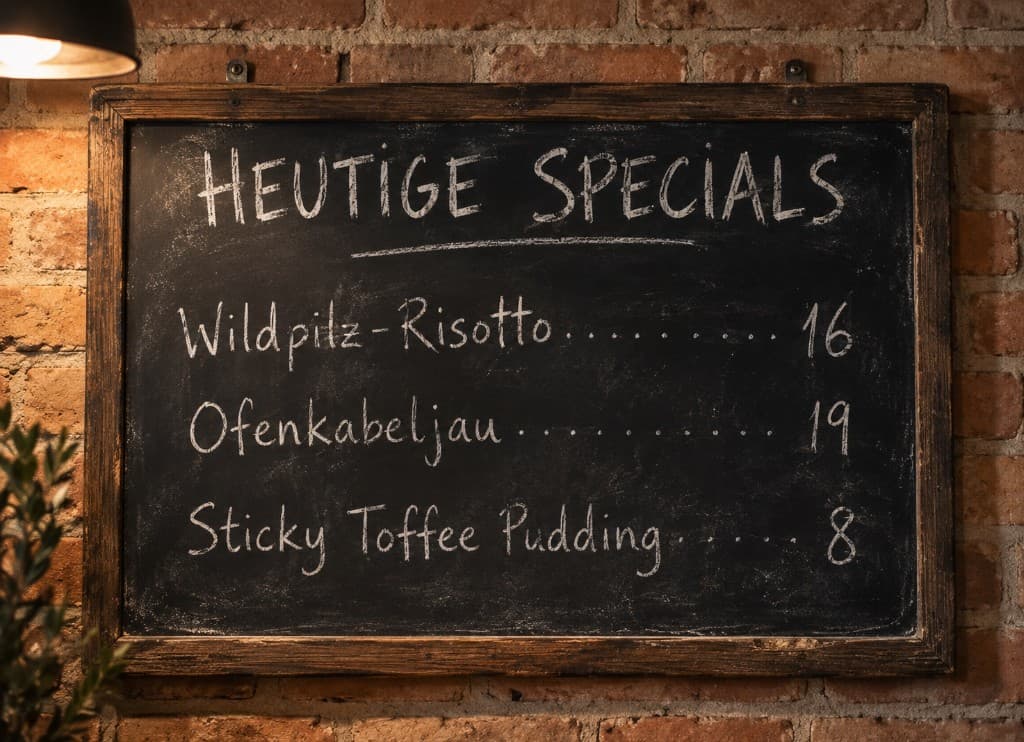 HEUTIGE SPECIALS
Wildpilz-Risotto.............16
Ofenkabeljau............19
Sticky Toffee Pudding......8